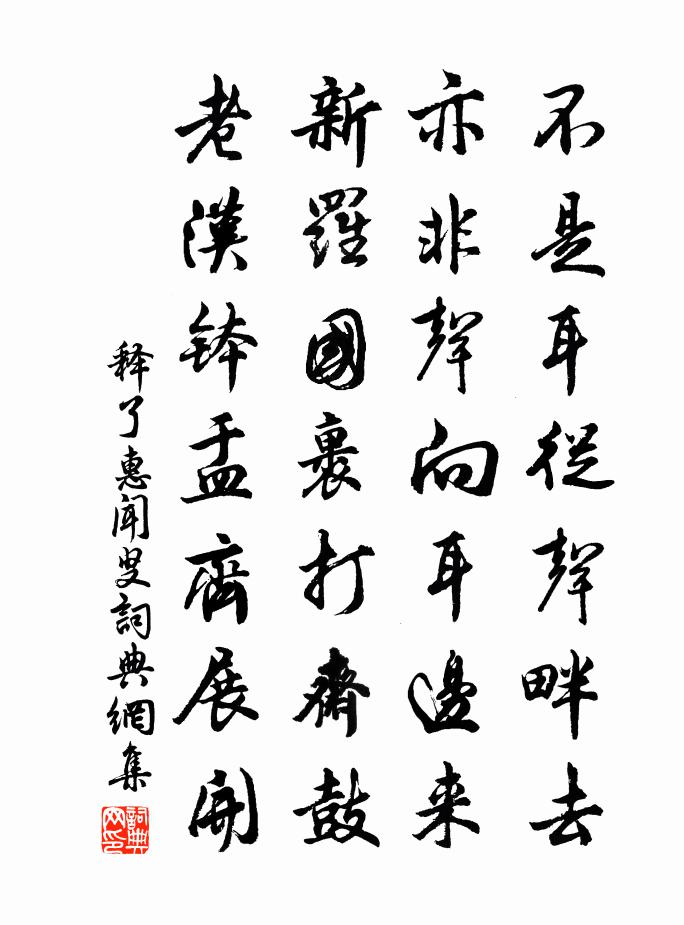 不是耳從聲畔去
亦非聲向耳邊来
新羅國裏打齋鼓
老漢鉢盂齊展開
释了惠聞叟詞典網集
詞典网印